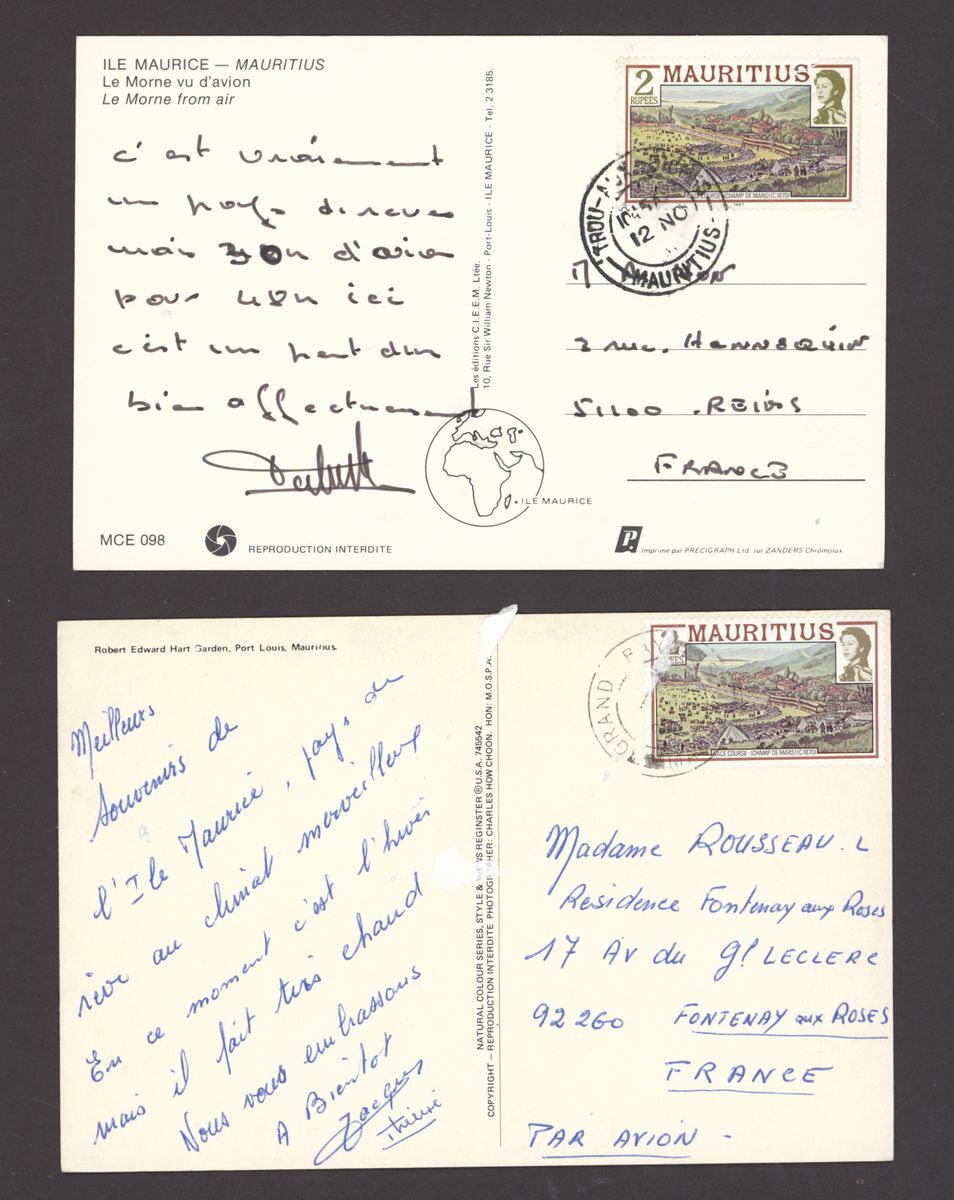 ILE MAURICE — MAURITIUS
Le Morne vu d'avion
Le Morne from air
c'est vraiment
un pays de reves
mais d'avion
pour 48h ici
c'est un peu dur
bien affectueusement
MCE 098
REPRODUCTION INTERDITE
Les éditions C.I.E.E.M. Ltée.
10, Rue Sir William Newton - Port-Louis - ILE MAURICE - Tel. 2 3185.
ILE MAURICE
2 MAURITIUS
RUPEES
RACE COURSE-(CHAMP DE MARS)(C.1870)
TROU-AUX
12 NO
MAURITIUS
M
2 rue. HANNEQUIN
51100 . REIMS
FRANCE
P
Imprimé par PRECIGRAPH Ltd. sur ZANDERS Chromolux
Robert Edward Hart Garden, Port Louis, Mauritius.
Meilleurs
Souvenirs de
l'Ile Maurice, pays de
rêve au climat merveilleux
En ce moment c'est l'hiver
mais il fait très chaud
Nous vous embrassons
A Bientot
Jacques
NATURAL COLOUR SERIES, STYLE & REGINSTER ® U.S.A. 745542
COPYRIGHT — REPRODUCTION INTERDITE PHOTOGRAPHER: CHARLES HOW CHOON. HON: M.O.S.P.A.
2 MAURITIUS
RACE COURSE-(CHAMP DE MARS)(C.1870)
GRAND
Madame ROUSSEAU. L
Résidence Fontenay aux Roses
17 AV du Gl LECLERC
92260 FONTENAY aux ROSES
FRANCE
PAR AVION -